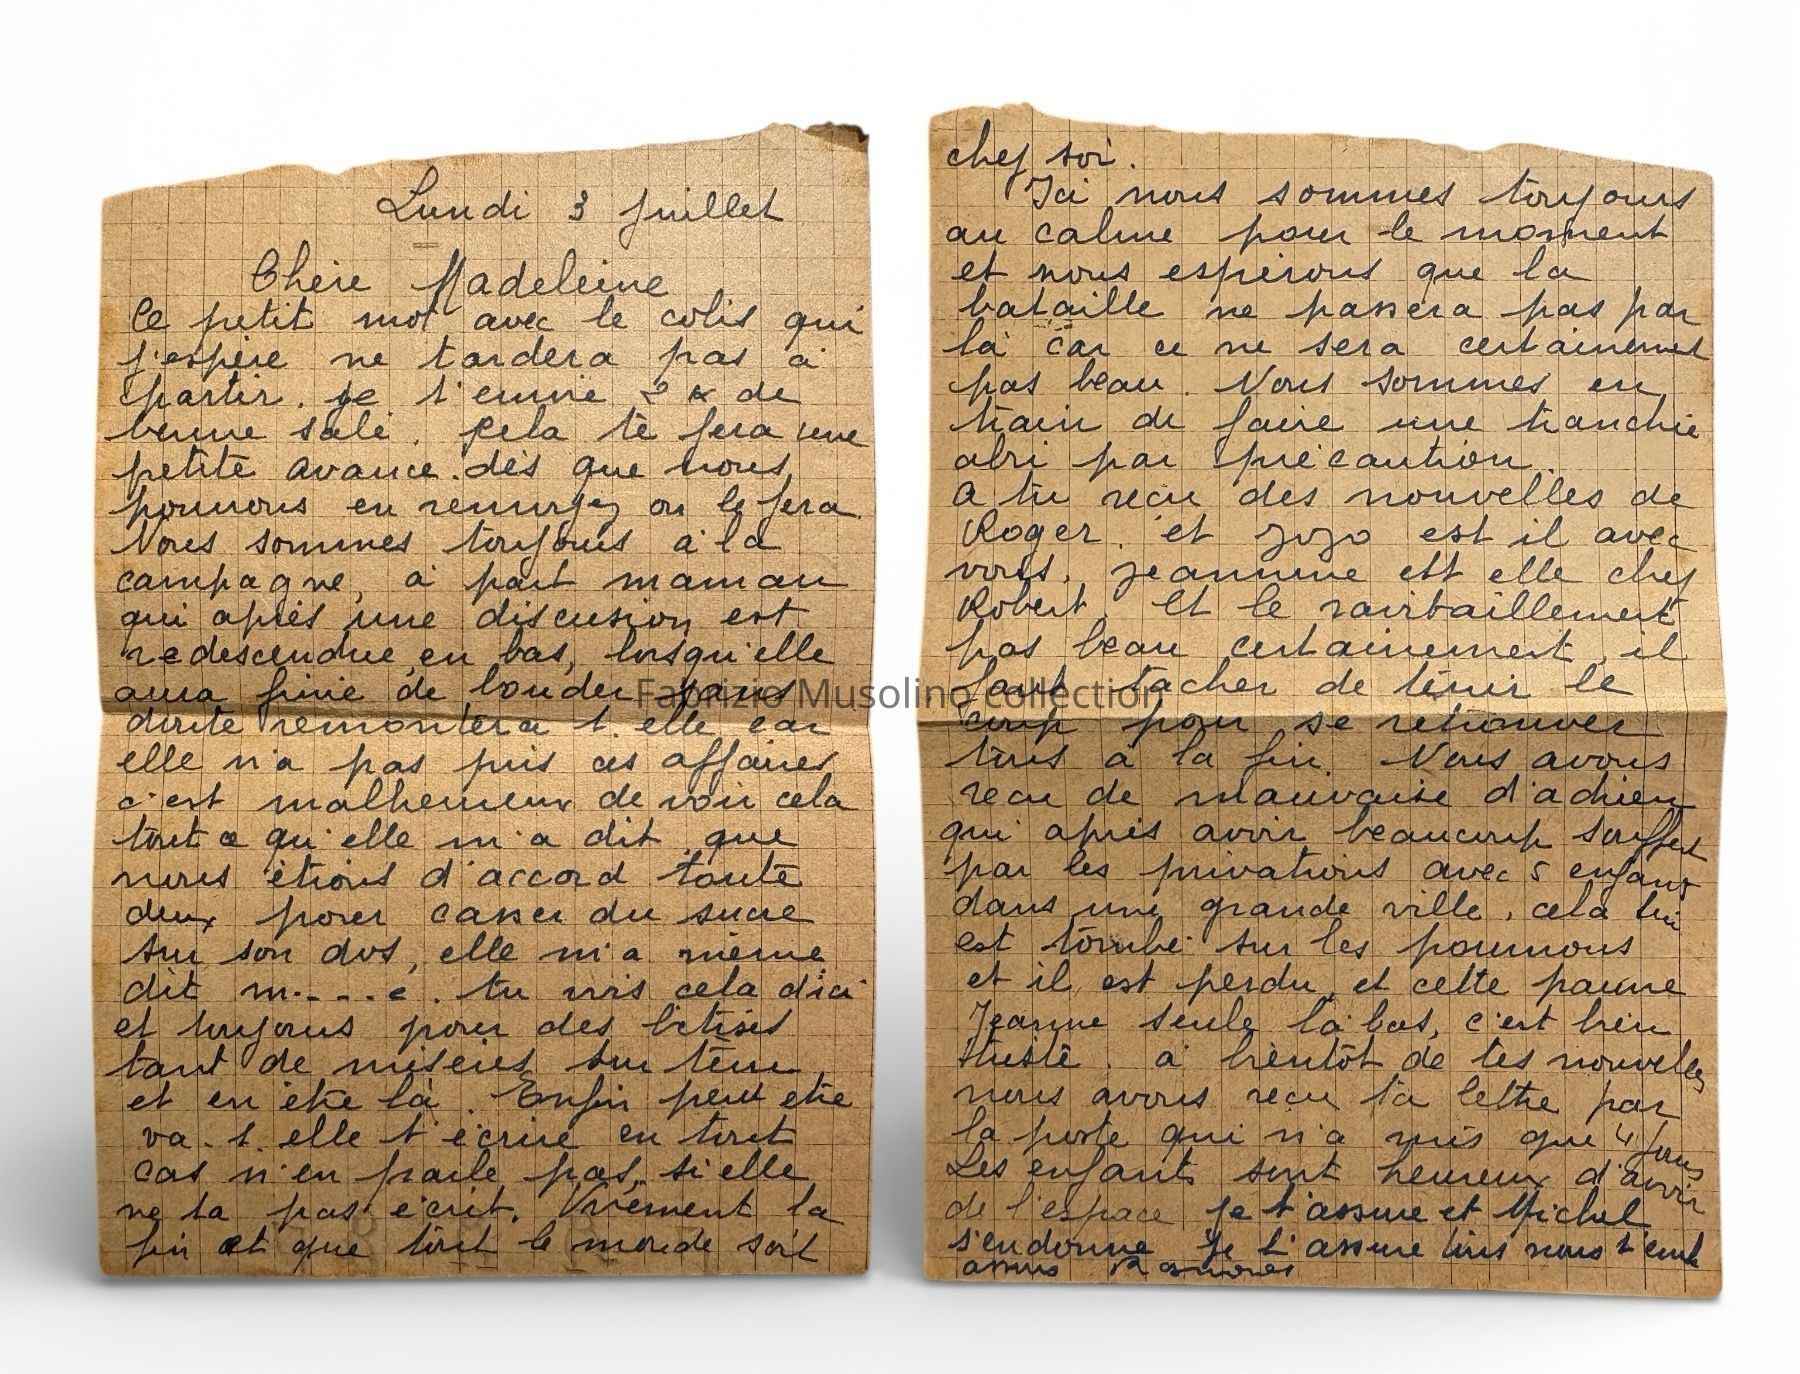 Lundi 3 juillet
Chère Madeleine
Ce petit mot avec le colis qui
j'espère ne tardera pas à
partir. je t'envoie 2 k de
beurre salé. Cela te fera une
petite avance. dès que nous
pourrons en renvoyez on le fera.
Nous sommes toujours à la
campagne, à part maman
qui après une discusion est
redescendue en bas, lorsqu'elle
aura finie de bouder sans
doute remontera t. elle car
elle n'a pas pris ces affaires
c'est malheureux de voir cela
tout ce qu'elle m'a dit, que
nous étions d'accord toute
deux pour casser du sucre
sur son dos, elle m'a même
dit m----e. tu vois cela d'ici
et toujours pour des bêtises
tant de misères sur terre
et en être là. Enfin peut etre
va-t. elle t'écrire en tout
cas n'en parle pas, si elle
ne ta pas écrit. Vivement la
fin et que tout le monde soit
chez soi.
Ici nous sommes toujours
au calme pour le moment
et nous espérons que la
bataille ne passera pas par
là car ce ne sera certainement
pas beau. Nous sommes en
train de faire une tranchée
abri par précaution.
a tu reçu des nouvelles de
Roger. et Jojo est il avec
vous. Jeannine est elle chez
Robert. Et le ravitaillement
pas beau certainement, il
faut tacher de tenir le
coup pour se retrouver
tous à la fin. Nous avons
recu de mauvaise d'adrien
qui après avoir beaucoup souffert
par les privations avec 5 enfants
dans une grande ville, cela lui
est tombé sur les poumons
et il est perdu, et cette pauvre
Jeanne seule là bas, c'est bien
triste. à bientôt de tes nouvelles
nous avons reçu ta lettre par
la poste qui n'a mis que 4 jours
Les enfants sont heureux d'avoir
de l'espace je t'assure et Michel
s'en donne je t'assure tous nous t'emb
Fabrizio Musolino collection